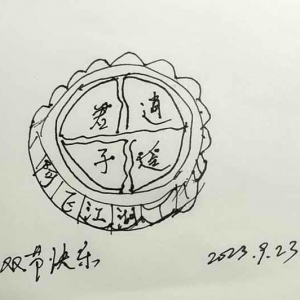 君 逍
子 遥
飞江湖
双节快乐
2023.9.23